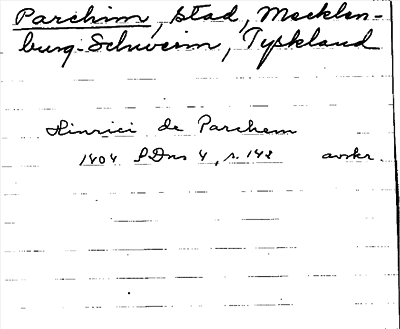 Parchim, stad, Mecklen-
burg-Schwerin, Tyskland
Hinrici de Parchem
1404 SDns 4, s. 142 avskr.